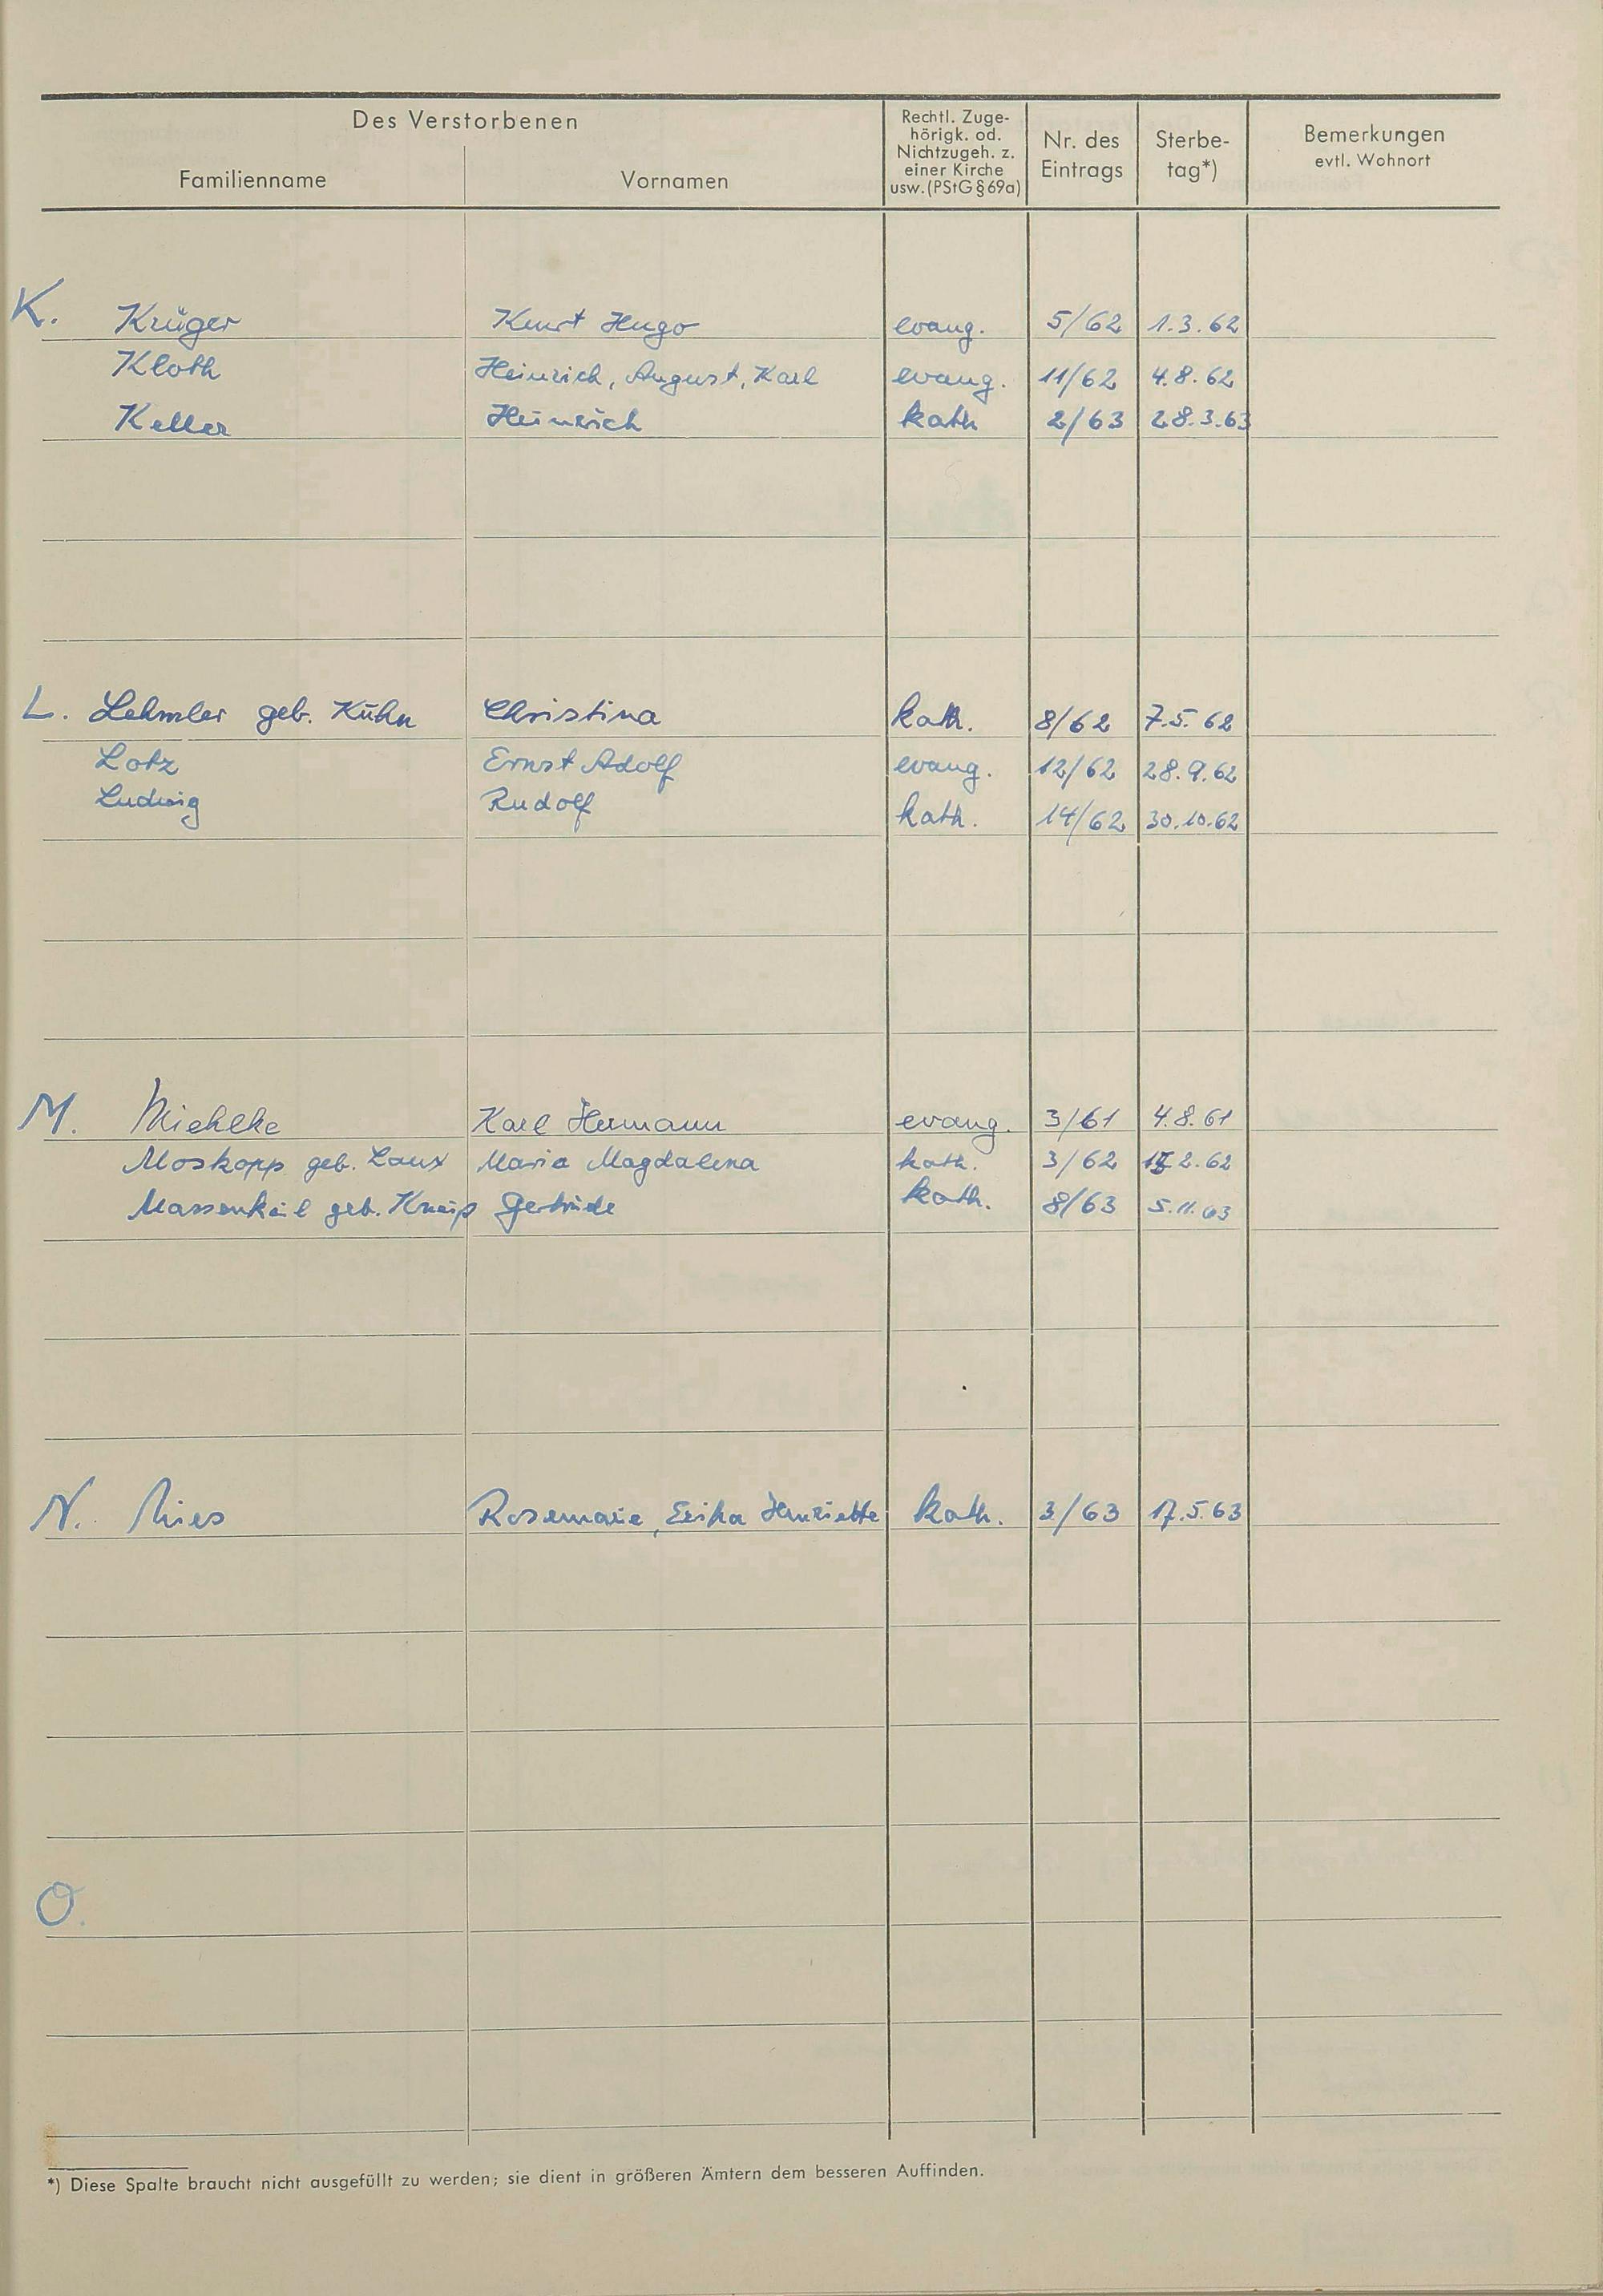 Des Verstorbenen
Familienname Vornamen
Rechtl. Zuge-
hörigk. od.
Nichtzugeh. z.
einer Kirche
usw. (PStG § 69a)
Nr. des
Eintrags
Sterbe-
tag*)
Bemerkungen
evtl. Wohnort
K. Krüger Kurt Hugo evang. 5/62 1.3.62
Kloth Heinrich, August, Karl evang. 11/62 4.8.62
Keller Heinrich kath 2/63 28.3.63
L. Lehmler geb. Kühn Christina kath. 8/62 7.5.62
Lotz Ernst Adolf evang. 12/62 28.9.62
Ludwig Rudolf kath. 14/62 30.10.62
M. Miehlke Karl Hermann evang. 3/61 4.8.61
Moskopp geb. Laux Maria Magdalena kath. 3/62 2.62
Massenkeil geb. Kneip Gertrude kath. 8/63 5.11.63
N. Nies Rosemarie, Erika Henriette kath. 3/63 17.5.63
O.
*) Diese Spalte braucht nicht ausgefüllt zu werden; sie dient in größeren Ämtern dem besseren Auffinden.